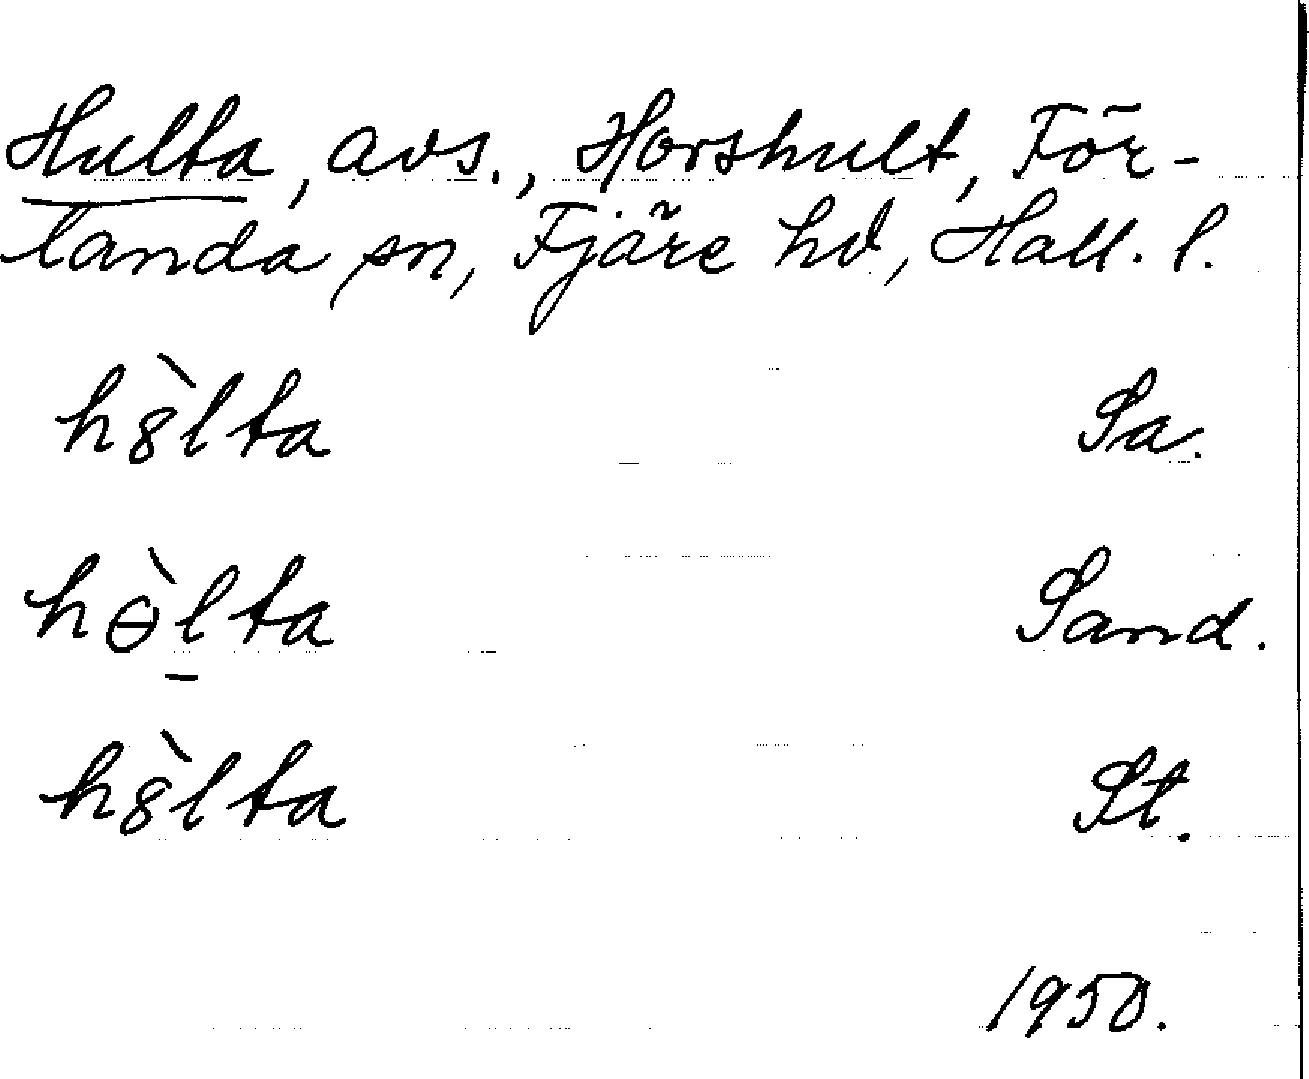 Hulta, avs., Horshult, För-
landa sn, Fjäre hd, Hall. l.
h8̀lta Sa.
hɵ̀lta Sand.
h8̀lta St.
1950.